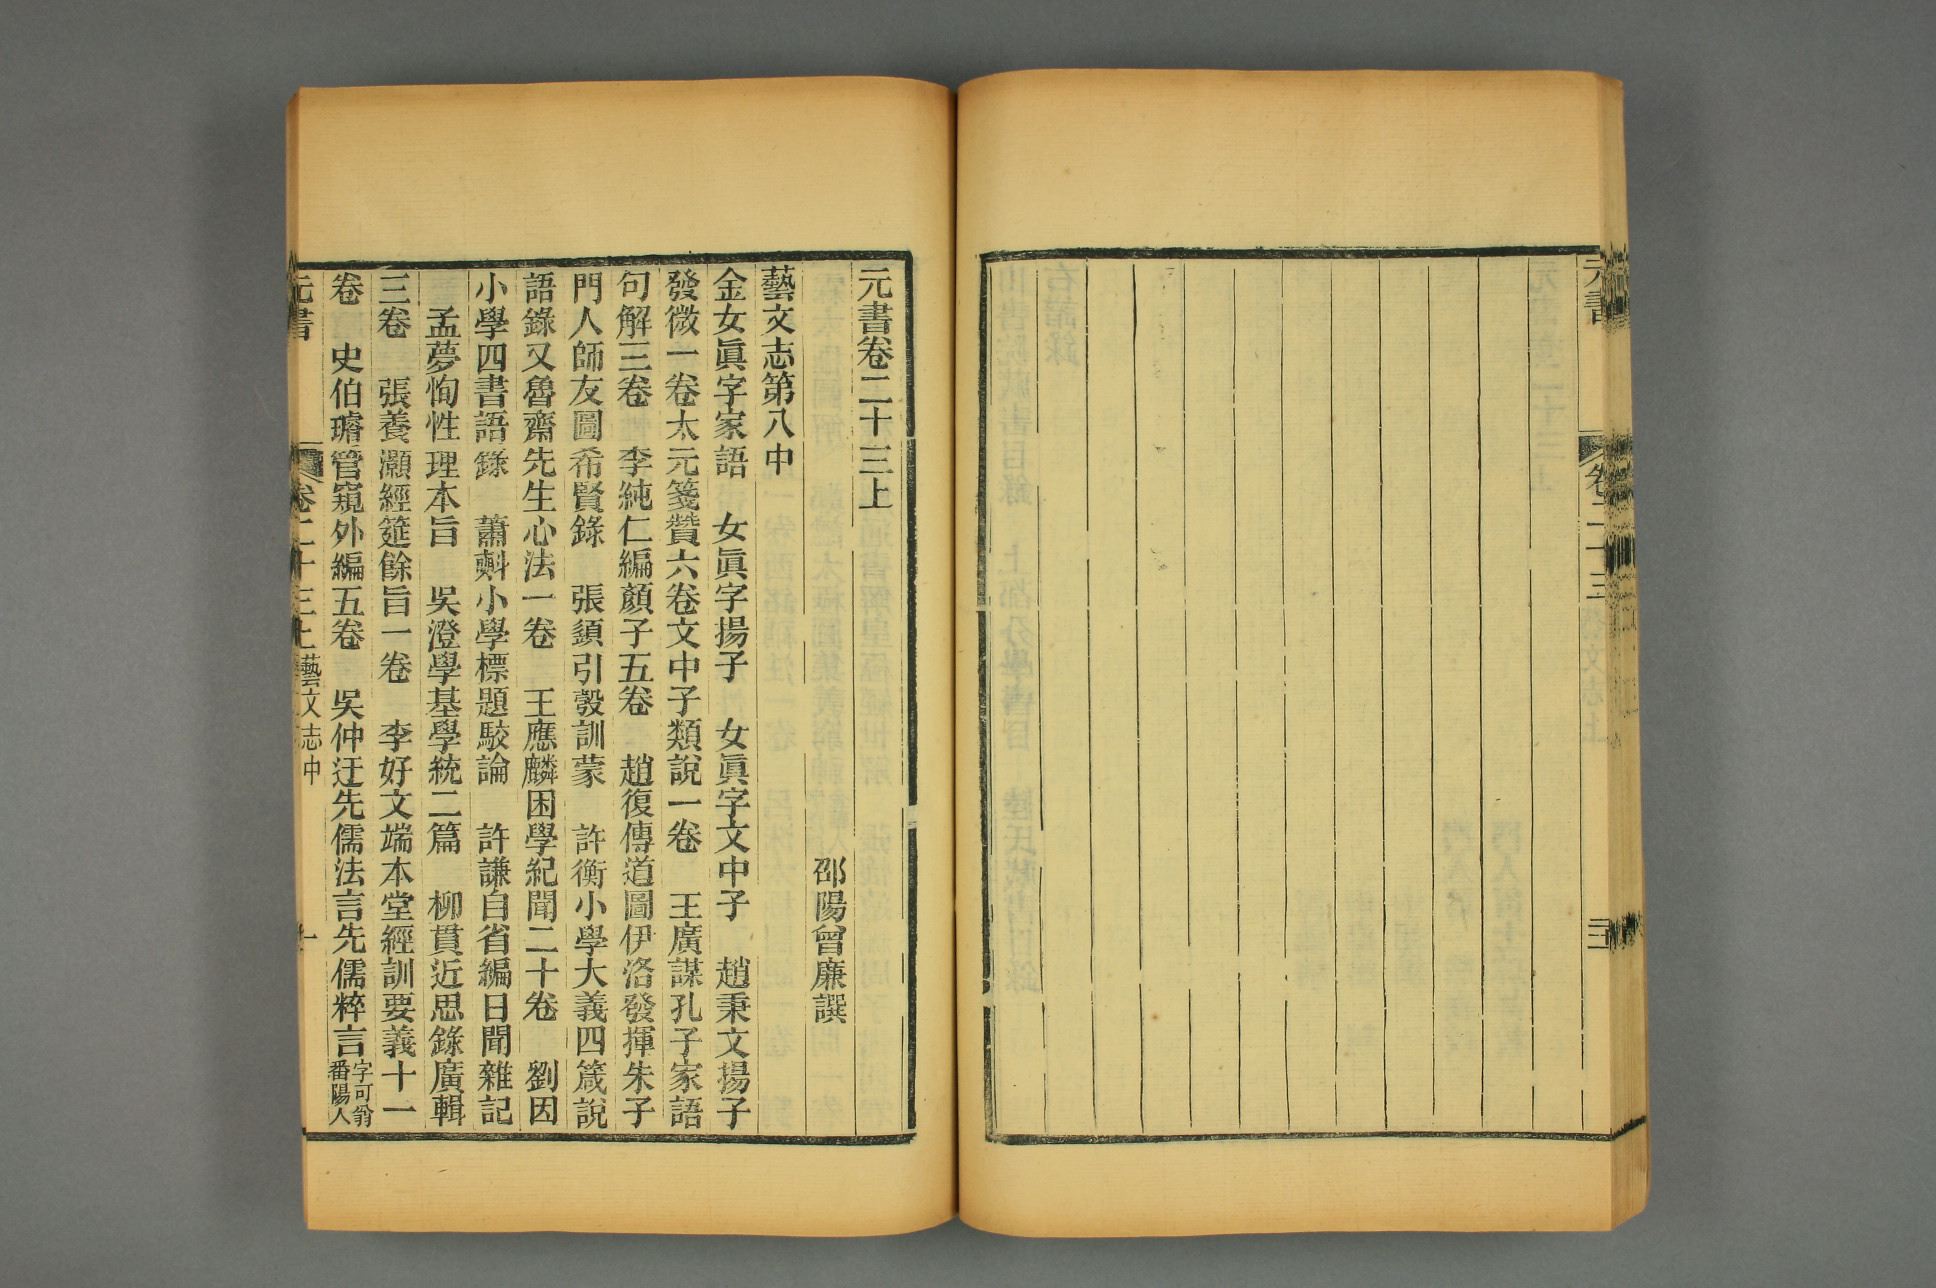 元書
卷二十三
三
元書卷二十三上
邵陽曾廉譔
藝文志第八中
金女眞字家語 女眞字揚子 女眞字文中子 趙秉文揚子
發微一卷太元箋贊六卷文中子類說一卷 王廣謀孔子家語
句解三卷 李純仁編顏子五卷 趙復傳道圖伊洛發揮朱子
門人師友圖希賢錄 張䇓引彀訓蒙 許衡小學大義四箴說
語錄又魯齋先生心法一卷 王應麟困學紀聞二十卷 劉因
小學四書語錄 蕭㪺小學標題駁論 許謙自省編日聞雜記
孟夢恂性理本旨 吳澄學基學統二篇 柳貫近思錄廣輯
三卷 張養灝經筵餘旨一卷 李好文端本堂經訓要義十一
卷 史伯璿管窺外編五卷 吳仲迂先儒法言先儒粹言字可翁番陽人
元書 卷二十三上藝文志中 一